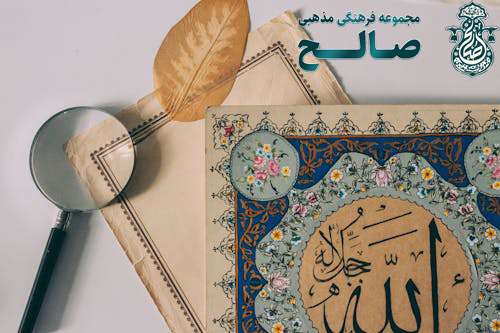 مجموعه فرهنگی مذهبی
صالح
الله
جل جلاله